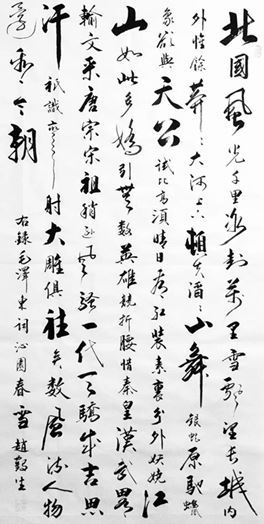 北國風光千里冰封萬里雪飄望長城內
外惟餘莽々大河上下頓失滔々山舞銀蛇原馳蠟
象欲與天公試比高須晴日看紅裝素裹分外妖嬈江
山如此多嬌引無數英雄競折腰惜秦皇漢武略
輸文采唐宗宋祖稍遜風騷一代天驕成吉思
汗祇識彎弓射大雕俱往矣數風流人物
還看今朝 右錄毛澤東詞沁園春雪 趙鶴生